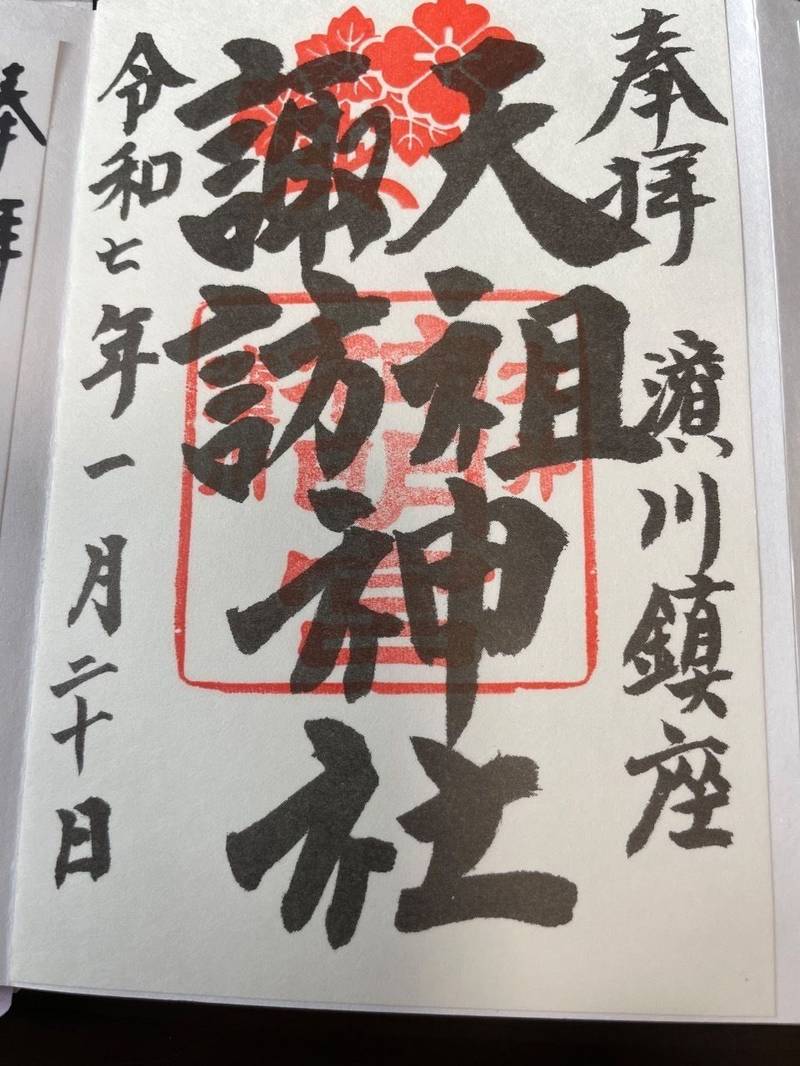 奉拝
濱川鎮座
天祖
諏訪
神社
令和七年一月二十日